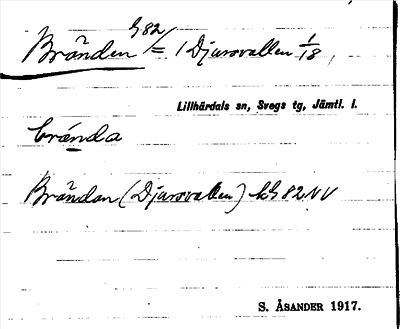 Bränden 982/= 1 Djursvallen 1/18,
Lillhärdals sn, Svegs tg, Jämtl. l.
brända
Brändan (Djursvallen) k 982 NV
S. ÅSANDER 1917.